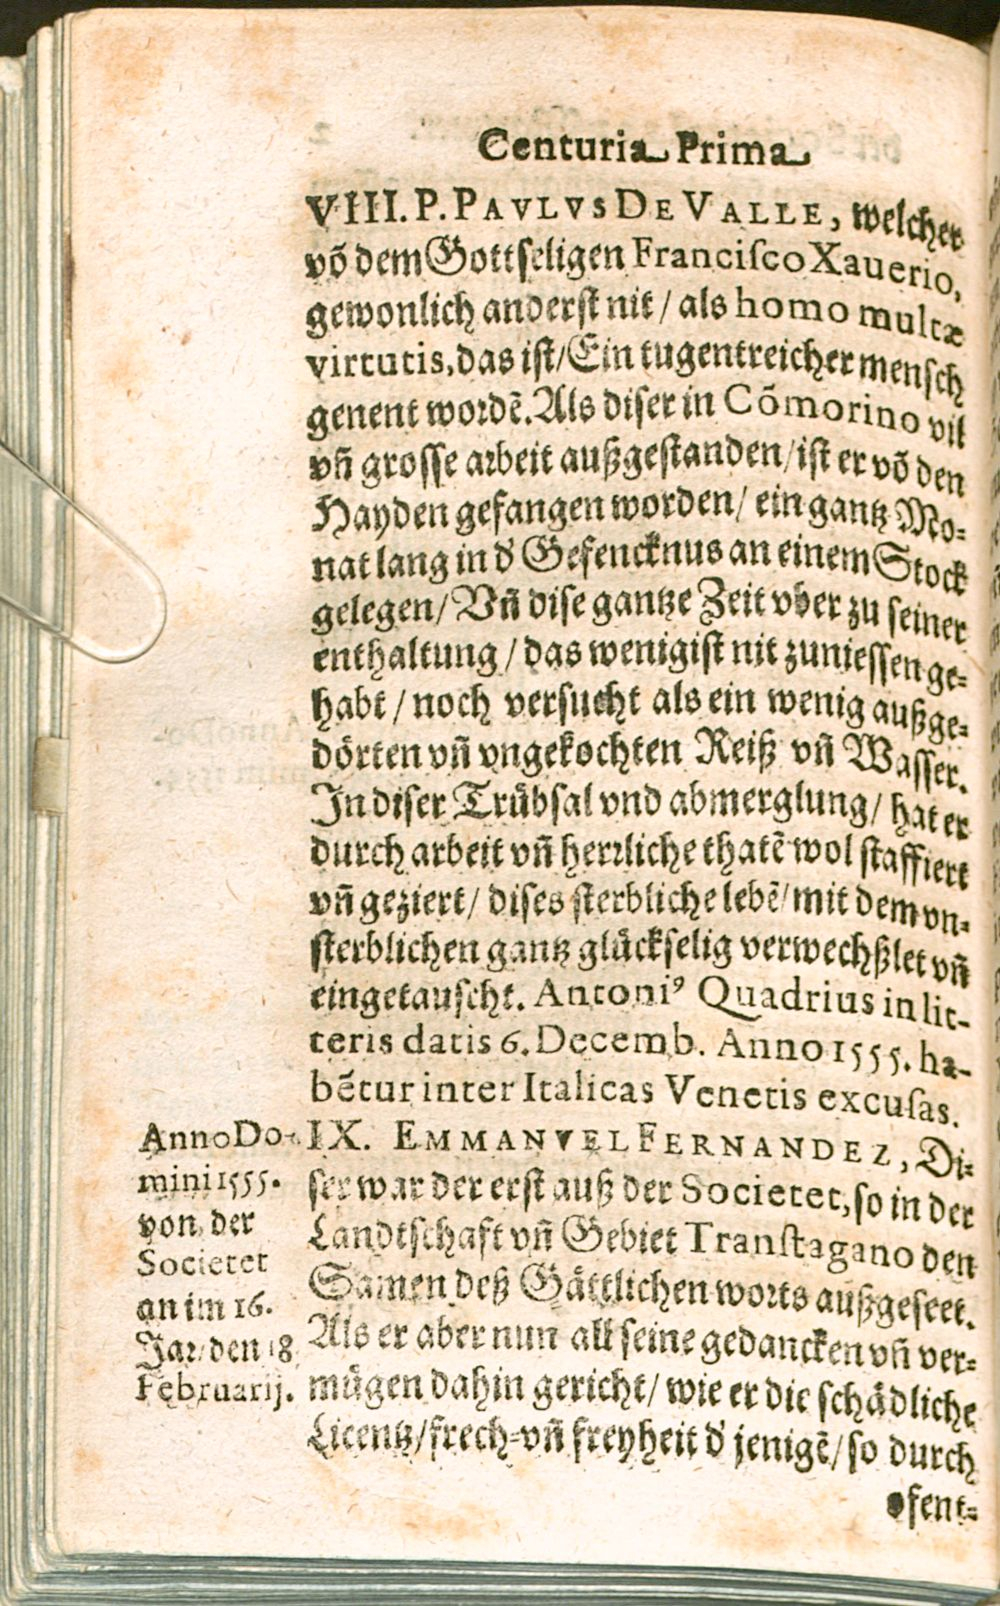 Centuria Prima
VIII. P. PAVLVS DE VALLE, welcher
võ dem Gottseligen Franciſco Xauerio,
gewonlich anderſt nit / als homo multæ
virtutis, das iſt / Ein tugentreicher menſch
genent wordẽ. Als diser in Cõmorino vil
vñ groſſe arbeit außgeſtanden / iſt er võ den
Hayden gefangen worden / ein gantz Mo-
nat lang in d' Gefencknus an einem Stock
gelegen / Vñ diſe gantze Zeit vber zu ſeiner
enthaltung / das wenigiſt nit zunieſſen ge-
habt / noch verſucht als ein wenig außge-
dörten vñ vngekochten Reiß vñ Waſſer.
In diſer Trübſal vnd abmerglung / hat er
durch arbeit vñ herꝛliche thatẽ wol ſtaffiert
vñ geziert / diſes ſterbliche lebẽ / mit dem vn-
ſterblichen gantz glückſelig verwechßlet vñ
eingetauſcht. Antoniꝰ Quadrius in lit-
teris datis 6. Decemb. Anno 1555. ha-
bẽtur inter Italicas Venetis excuſas.
Anno Do-
mini 1555.
von der
Societet
an im 16.
Jar / den 18
Februarij.
IX. EMMANVEL FERNANDEZ, Di-
ſer war der erſt auß der Societet, ſo in der
Landtſchafft vñ Gebiet Tranſtagano den
Samen deß Gättlichen worts außgeſeet.
Als er aber nun all ſeine gedancken vñ ver-
mügen dahin gericht / wie er die ſchädliche
Licentz / frech- vñ freyheit d' jenigẽ / ſo durch
ofent-